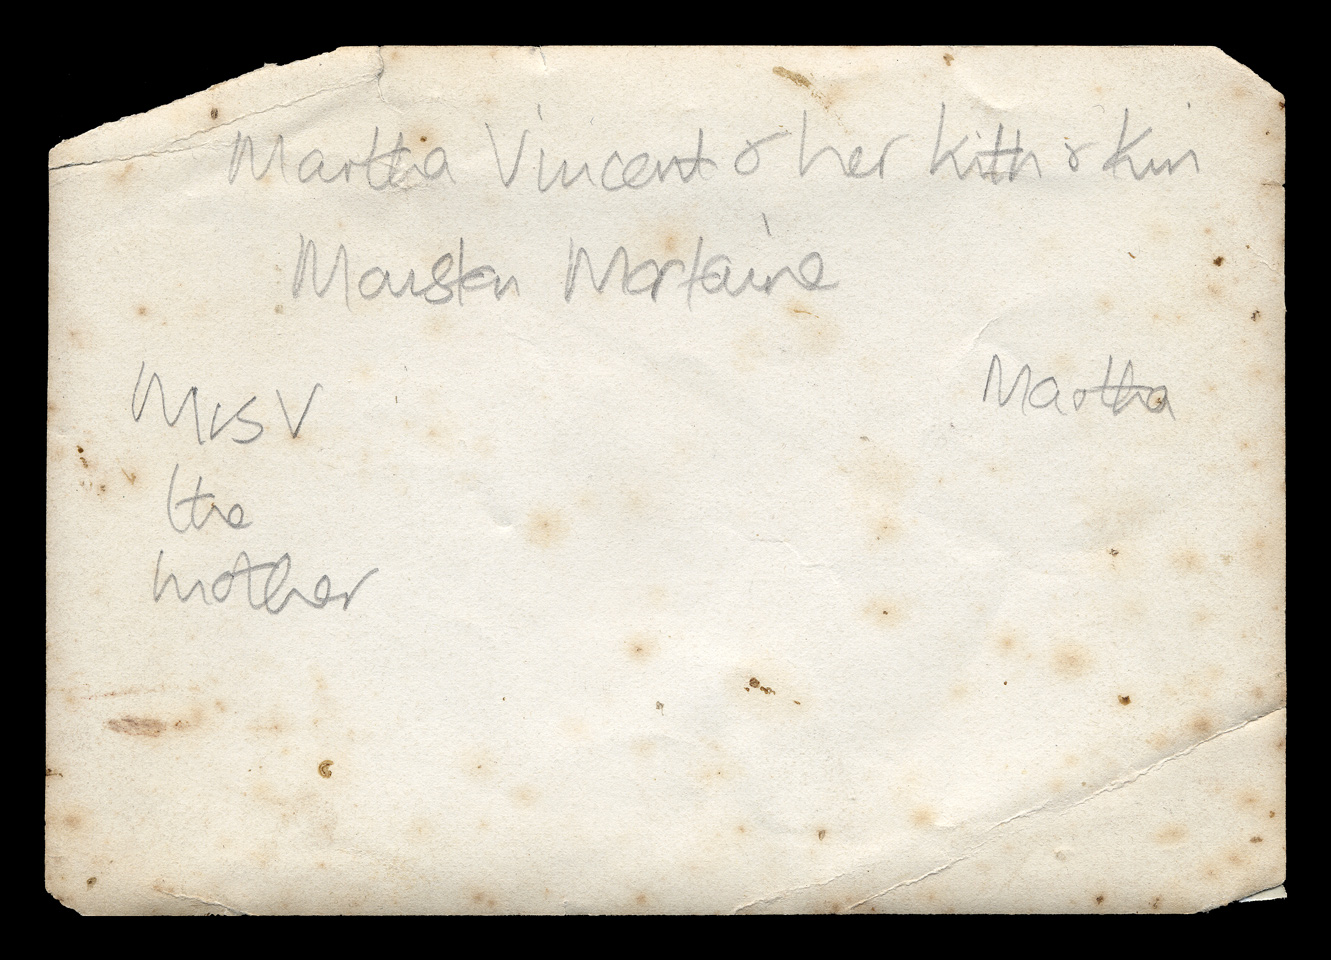 Martha Vincent & her Kith & Kin
Mrs V
Martha
the
mother